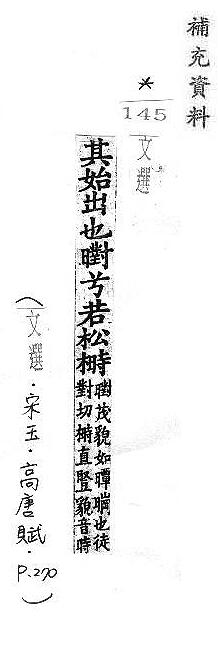 補充資料
*
145
文選
其始出也㬣兮若松榯
茂貌如也徒
對切榯直豎貌音時
(文選·宋玉·高唐賦·P.270)